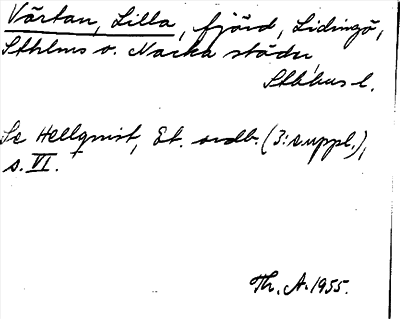 Värtan, Lilla, fjärd, Lidingö,
Sthlms o. Nacka städer,
Sthlms l.
Se Hellquist, Et. ordb. (3: suppl.),
s. VI.
Th. A. 1955.